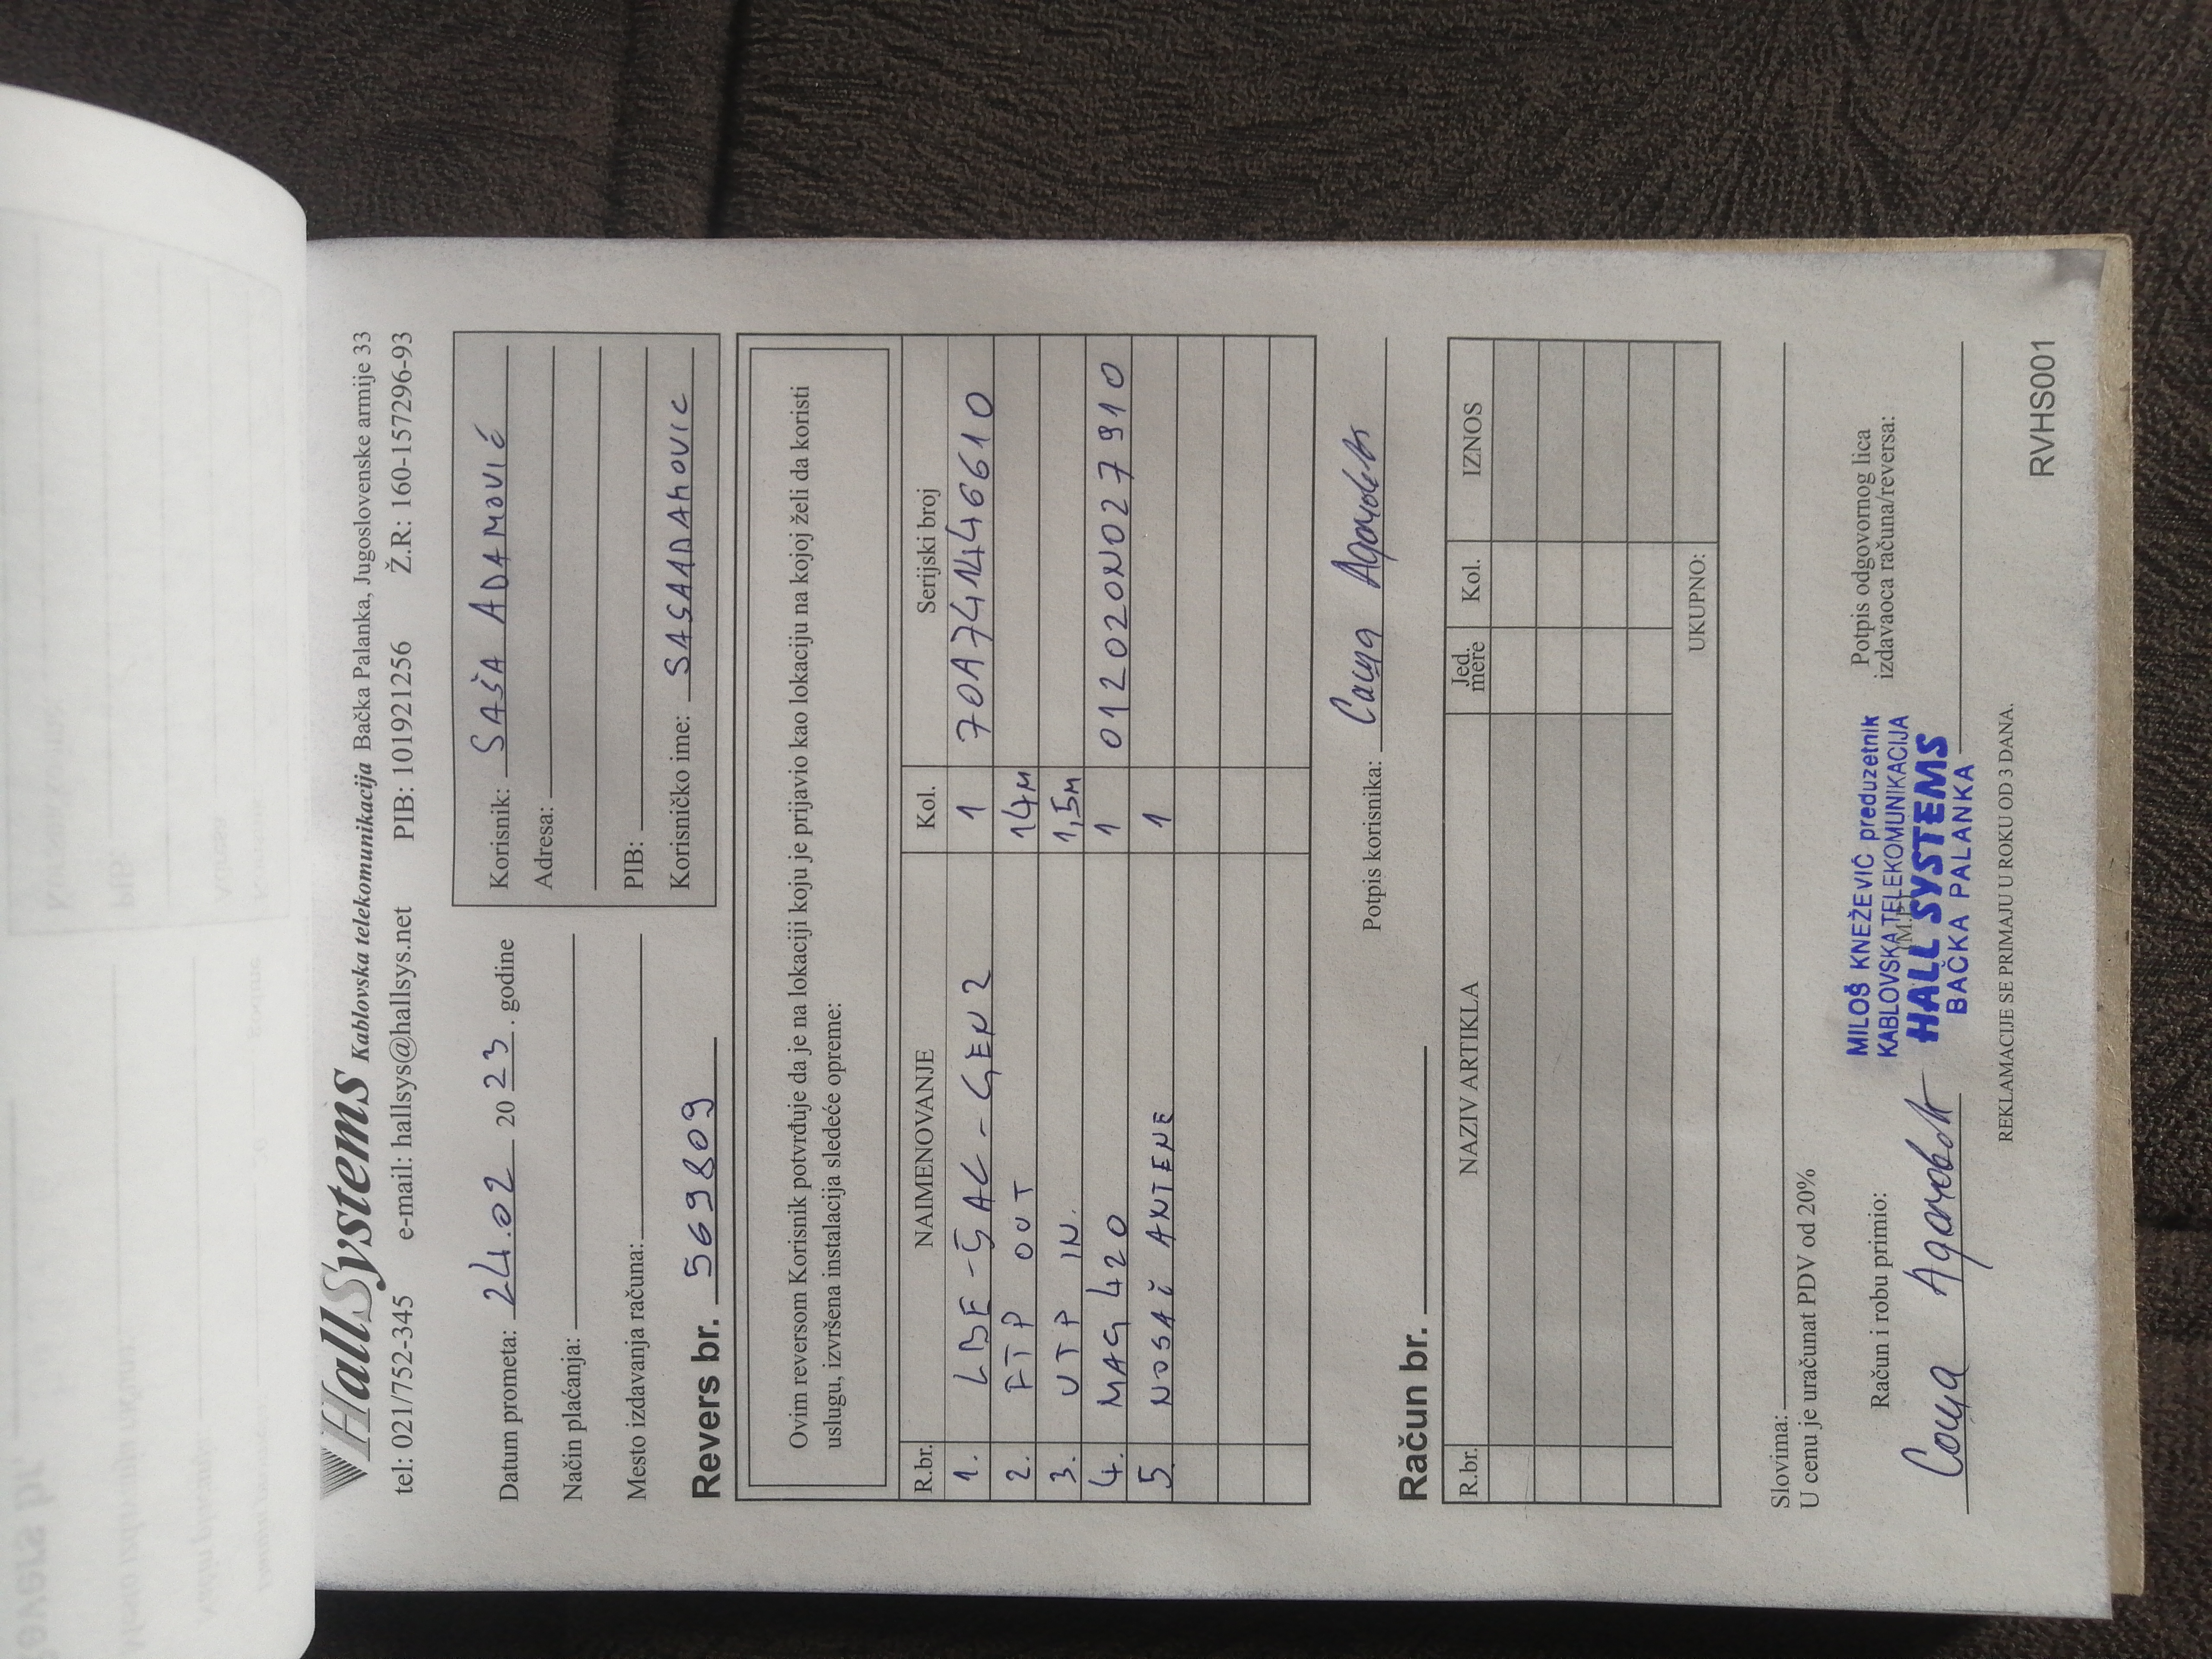 HallSystems Kablovska telekomunikacija Bačka Palanka, Jugoslovenske armije 33
tel: 021/752-345 e-mail: hallsys@hallsys.net PIB: 101921256 Ž.R: 160-157296-93
Datum prometa: 24.02 2023. godine
Način plaćanja:
Mesto izdavanja računa:
Revers br. 569809
Korisnik: SAŠA ADAMOVIĆ
Adresa:
PIB:
Korisničko ime: SASAADAMOVIC
Ovim reversom Korisnik potvrđuje da je na lokaciji koju je prijavio kao lokaciju na kojoj želi da koristi
uslugu, izvršena instalacija sledeće opreme:
R.br. NAIMENOVANJE Kol. Serijski broj
1. LBE-5AC-GEN2 1 70A741446610
2. FTP OUT 14M
3. UTP IN. 1,5M
4. MAG 420 1 012020N027910
5 NOSAČ ANTENE 1
Potpis korisnika: Саша Адамовић
Račun br.
R.br. NAZIV ARTIKLA Jed. mere Kol. IZNOS
UKUPNO:
Slovima:
U cenu je uračunat PDV od 20%
Račun i robu primio:
Саша Адамовић
(M.P.)
MILOŠ KNEŽEVIĆ preduzetnik
KABLOVSKA TELEKOMUNIKACIJA
HALL SYSTEMS
BAČKA PALANKA
Potpis odgovornog lica
izdavaoca računa/reversa:
REKLAMACIJE SE PRIMAJU U ROKU OD 3 DANA.
RVHS001